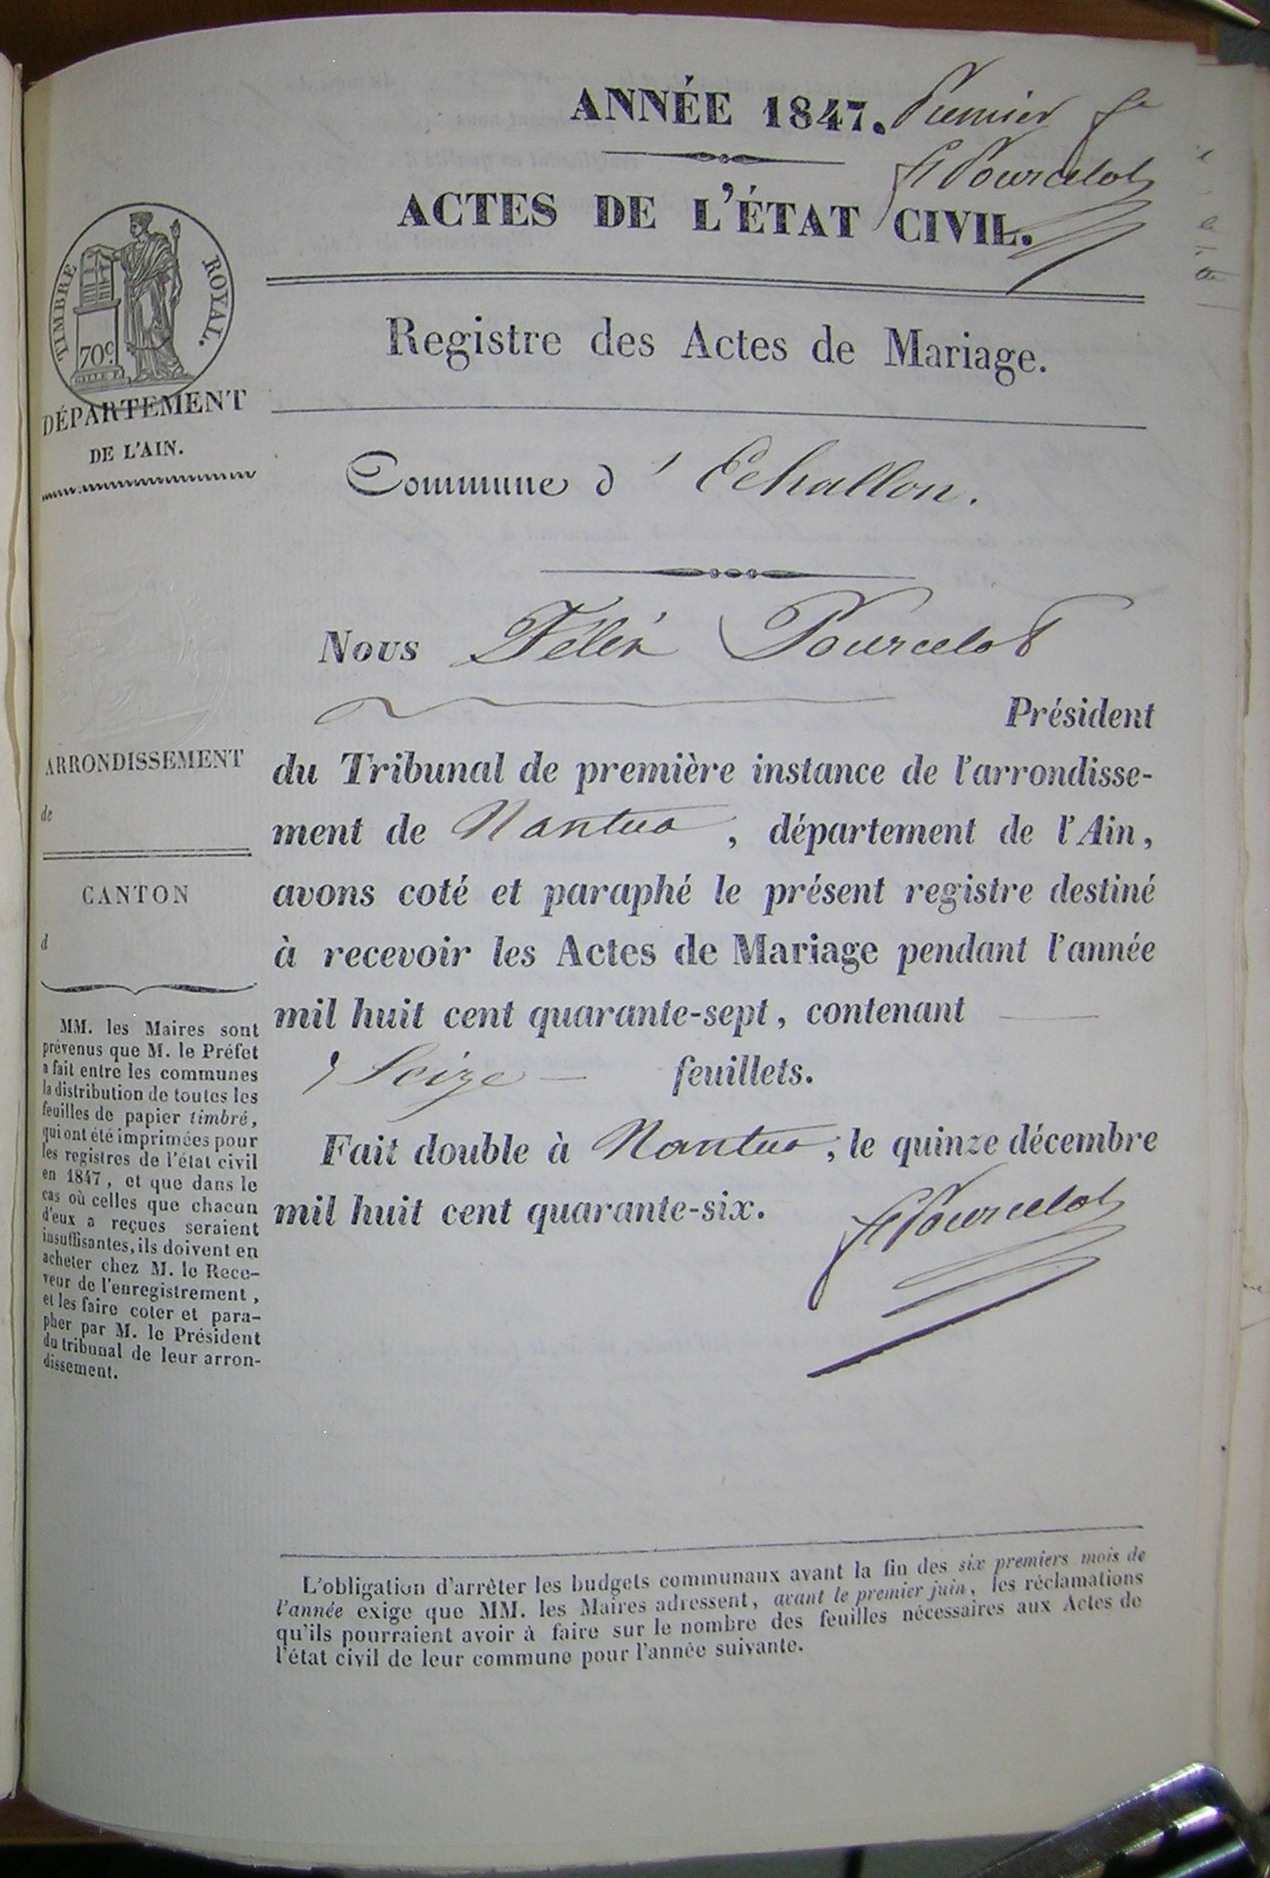 ANNÉE 1847. Premier f.e
F. Pourcelot
ACTES DE L'ÉTAT CIVIL.
TIMBRE ROYAL.
70c
Registre des Actes de Mariage.
DÉPARTEMENT
DE L'AIN.
Commune d'Echallon.
Nous Félix Pourcelot
Président
du Tribunal de première instance de l'arrondisse-
ment de Nantua, département de l'Ain,
avons coté et paraphé le présent registre destiné
à recevoir les Actes de Mariage pendant l'année
mil huit cent quarante-sept, contenant
Seize feuillets.
Fait double à Nantua, le quinze décembre
mil huit cent quarante-six.
F. Pourcelot
ARRONDISSEMENT
de
CANTON
d
MM. les Maires sont
prévenus que M. le Préfet
a fait entre les communes
la distribution de toutes les
feuilles de papier timbré,
qui ont été imprimées pour
les registres de l'état civil
en 1847, et que dans le
cas où celles que chacun
d'eux a reçues seraient
insuffisantes, ils doivent en
acheter chez M. le Rece-
veur de l'enregistrement,
et les faire coter et para-
pher par M. le Président
du tribunal de leur arron-
dissement.
L'obligation d'arrêter les budgets communaux avant la fin des six premiers mois de
l'année exige que MM. les Maires adressent, avant le premier juin, les réclamations
qu'ils pourraient avoir à faire sur le nombre des feuilles nécessaires aux Actes de
l'état civil de leur commune pour l'année suivante.